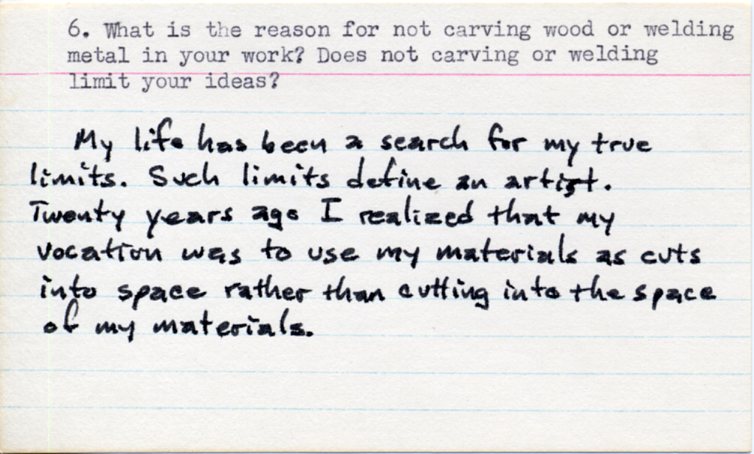 6. What is the reason for not carving wood or welding
metal in your work? Does not carving or welding
limit your ideas?
My life has been a search for my true
limits. Such limits define an artist.
Twenty years ago I realized that my
vocation was to use my materials as cuts
into space rather than cutting into the space
of my materials.